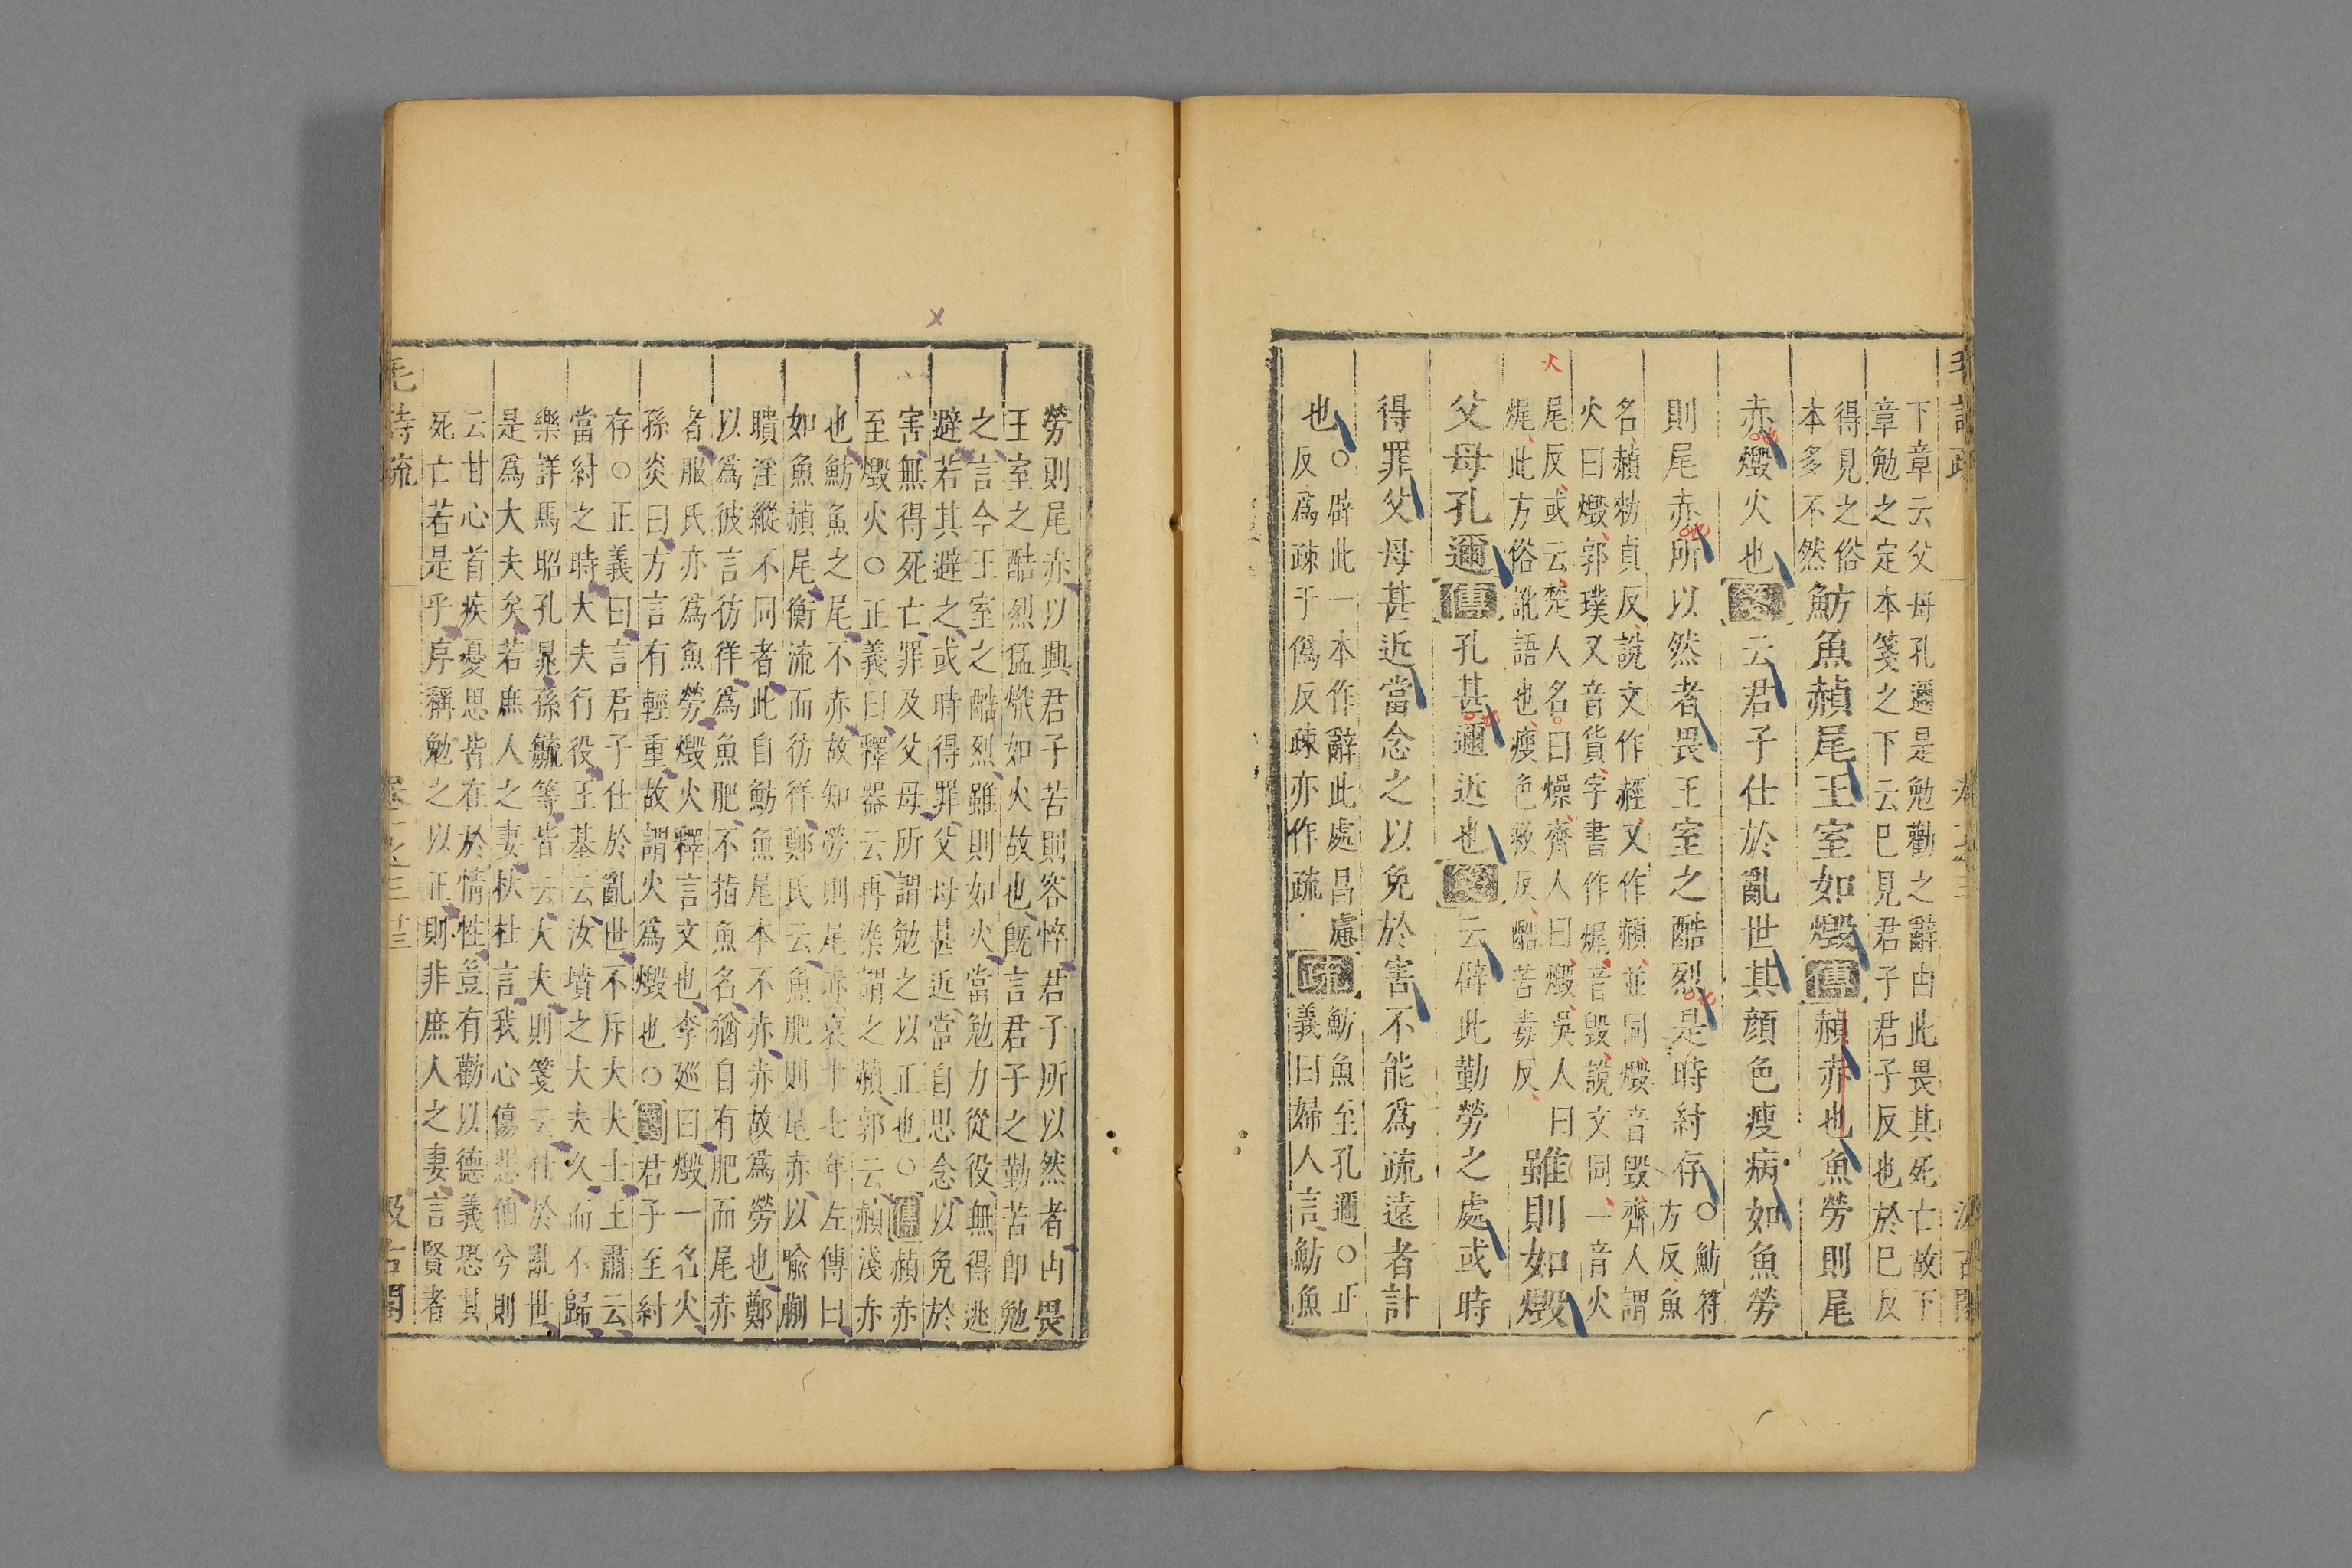 毛詩疏 卷一之三 汲古閣
下章云父母孔邇是勉勸之辭由此畏其死亡故下
章勉之定本箋之下云巳見君子君子反也於巳反
得見之俗
本多不然
魴魚赬尾王室如燬傳赬赤也魚勞則尾
赤燬火也箋云君子仕於亂世其顔色瘦病如魚勞
則尾赤所以然者畏王室之酷烈是時紂存
○魴符
方反魚
名赬勑貞反說文作䞓又作赬並同燬音毀齊人謂
火曰燬郭璞又音貨字書作㷄音毀說文同一音火
尾反或云楚人名曰燥齊人曰燬吳人曰
㷄此方俗訛語也瘦色救反酷苦毒反
雖則如燬
父母孔邇傳孔甚邇近也箋云辟此勤勞之處或時
得罪父母甚近當念之以免於害不能爲疏遠者計
也
○辟此一本作辭此處昌慮
反爲疎于僞反疎亦作疏
疏
魴魚至孔邇○正
義曰婦人言魴魚
勞則尾赤以興君子苦則容悴君子所以然者由畏
王室之酷烈猛熾如火故也旣言君子之勤苦卽勉
之言今王室之酷烈雖則如火當勉力從役無得逃
避若其避之或時得罪父母甚近當自思念以免於
害無得死亡罪及父母所謂勉之以正也○傳赬赤
至燬火○正義曰釋器云再染謂之赬郭云赬淺赤
也魴魚之尾不赤故知勞則尾赤哀十七年左傳曰
如魚赬尾衡流而彷徉鄭氏云魚肥則尾赤以喻蒯
聵淫縱不同者此自魴魚尾本不赤赤故爲勞也鄭
以爲彼言彷徉爲魚肥不指魚名猶自有肥而尾赤
者服氏亦爲魚勞燬火釋言文也李廵曰燬一名火
孫炎曰方言有輕重故謂火爲燬也○箋君子至紂
存○正義曰言君子仕於亂世不斥大夫士王肅云
當紂之時大夫行役王基云汝墳之大夫久而不歸
樂詳馬昭孔晁孫毓等皆云大夫則箋云仕於亂世
是爲大夫矣若庶人之妻杕杜言我心傷悲伯兮則
云甘心首疾憂思皆在於情性豈有勸以德義恐其
死亡若是乎序稱勉之以正則非庶人之妻言賢者
毛詩疏 卷一之三 廿三 汲古閣